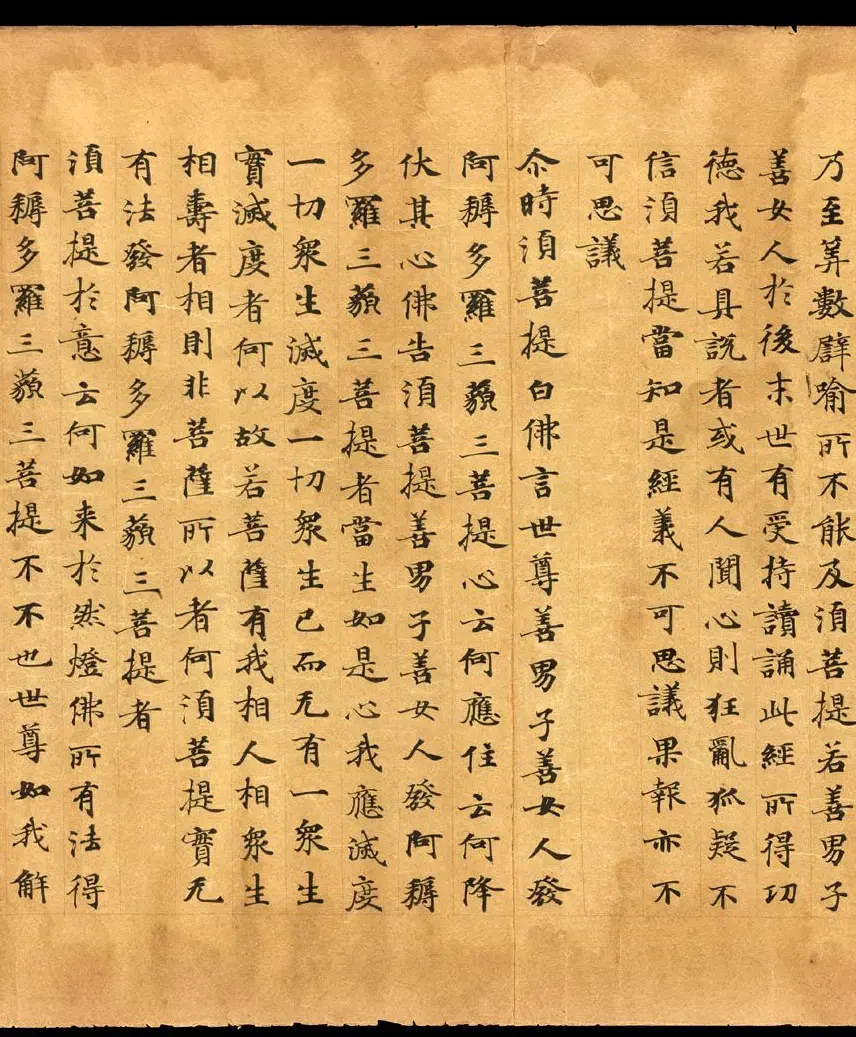 乃至筭數譬喻所不能及須菩提若善男子
善女人於後末世有受持讀誦此經所得功
德我若具說者或有人聞心則狂亂狐疑不
信須菩提當知是經義不可思議果報亦不
可思議
尒時須菩提白佛言世尊善男子善女人發
阿耨多羅三藐三菩提心云何應住云何降
伏其心佛告須菩提善男子善女人發阿耨
多羅三藐三菩提者當生如是心我應滅度
一切衆生滅度一切衆生已而无有一衆生
實滅度者何以故若菩薩有我相人相衆生
相壽者相則非菩薩所以者何須菩提實无
有法發阿耨多羅三藐三菩提者
須菩提於意云何如来於然燈佛所有法得
阿耨多羅三藐三菩提不不也世尊如我解